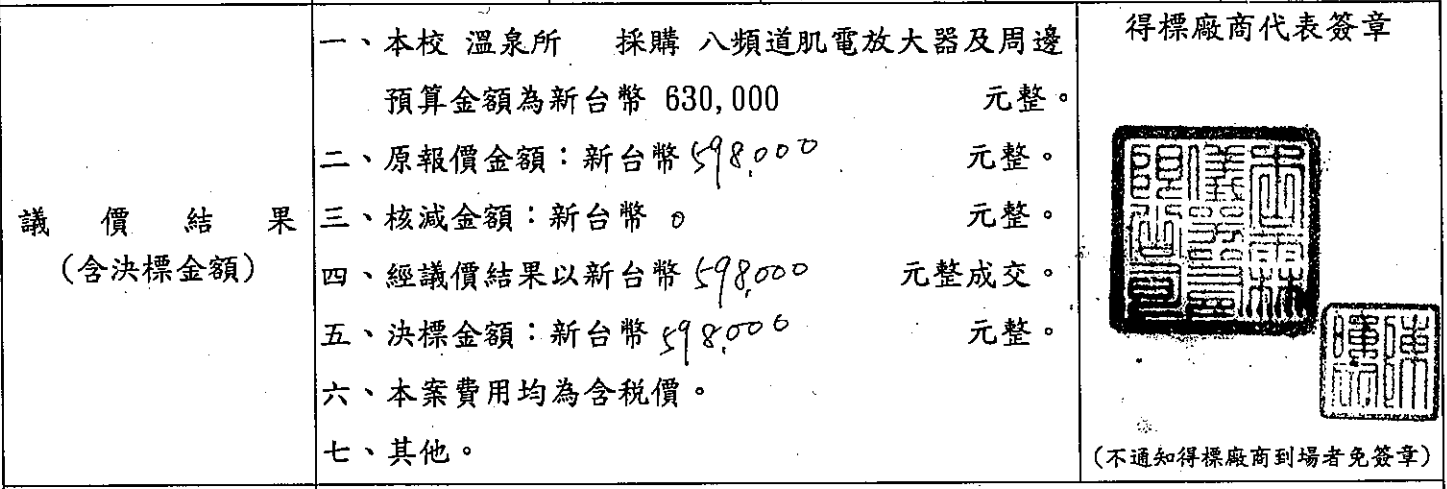 議價結果
(含決標金額)
一、本校 溫泉所 採購 八頻道肌電放大器及周邊
預算金額為新台幣 630,000 元整。
二、原報價金額：新台幣 598,000 元整。
三、核減金額：新台幣 0 元整。
四、經議價結果以新台幣 598,000 元整成交。
五、決標金額：新台幣 598,000 元整。
六、本案費用均為含稅價。
七、其他。
得標廠商代表簽章
(不通知得標廠商到場者免簽章)